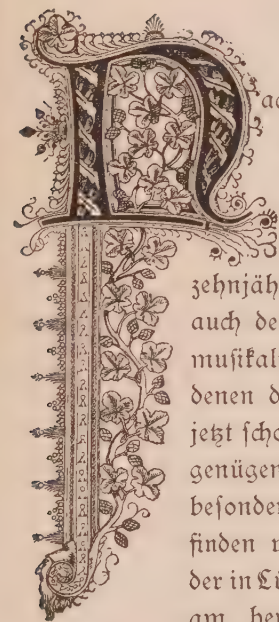 Nac
zehnjäh
auch de
muſikal
denen d
jetzt ſcho
genügen
beſonder
finden
der in Li
am